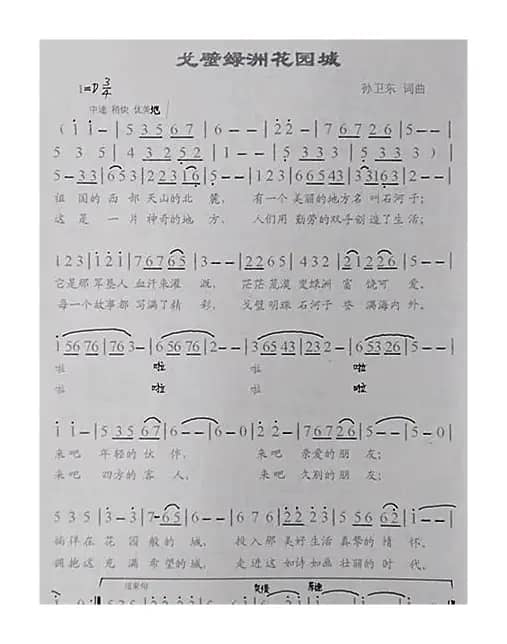 戈壁绿洲花园城
1=D 3/4
孙卫东 词曲
中速 稍快 优美地
( i i - | 5 3 5 6 7 | 6 - - | 2 2 - | 7 6 7 2 6 | 5 - - |
5 3 5 | 4 3 2 5 2 | 1 - - | 5 3 5 | 5 3 5 3 )
祖 国的西 部 天山的北 麓， 有一个 美丽的地方名 叫石河 子；
这 是 一 片 神奇的地 方， 人们用 勤劳的双手创 造了生 活；
1 2 3 | i 2 i | 7 6 7 6 5 | 5 - - | 2 2 6 5 | 4 3 2 | 2 1 2 2 6 | 5 - - |
它是那 军垦人 血汗来灌 溉， 茫茫荒漠 变绿洲 富 饶可 爱。
每一个故事都 写满了精 彩， 戈壁明珠 石河子 誉 满海内 外。
啦 啦 啦 啦
啦 啦 啦 啦
i i - | 5 3 5 6 7 | 6 - - | 6 - 0 | 2 2 - | 7 6 7 2 6 | 5 - - | 5 - 0 |
来吧 年轻的 伙 伴， 来吧 亲爱的 朋 友；
来吧 四方的 客 人， 来吧 久别的 朋 友；
5 3 5 | 3 - 3 | 7 - 6 5 | 6 - - | 6 7 6 | 2 2 2 3 | 5 5 5 6 | 6 2 | i - - | i - - |
徜徉在 花 园 般的 城， 投入那 美好生活 真挚的 情 怀。
拥抱这 充 满 希望的 城， 走进这 如诗如画 壮丽的 时 代。
结束句 突慢 原速